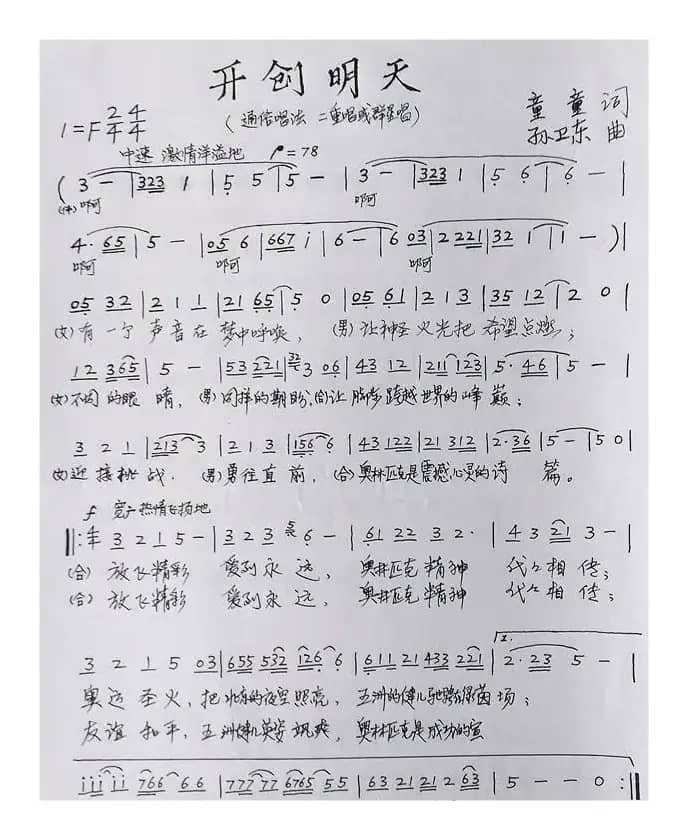 开创明天
(通俗唱法 二重唱或群星唱)
童童 词
孙卫东 曲
1=F 2/4 4/4
中速 激情洋溢地 ♩=78
(3 - | 323 1 | 5 5 | 5 - | 3 - | 323 1 | 5 6 | 6 - |
(伴)啊 啊
4· 65 | 5 - | 05 6 | 667 i | 6 - | 6 03 | 2 221 | 32 1 | 1 - ) |
啊 啊 啊
05 32 | 2 1 1 | 21 65 | 5 0 | 05 61 | 2 1 3 | 35 12 | 2 0 |
(女)有一个声音在梦中呼唤, (男)让神圣火光把希望点燃;
12 365 | 5 - | 53 221 | 3 06 | 43 12 | 211 123 | 5· 46 | 5 - |
(女)不同的眼睛, (男)同样的期盼, (合)让脚步跨越世界的峰巅;
3 2 1 | 213 3 | 2 1 3 | 156 6 | 43 122 | 21 312 | 2· 36 | 5 - | 5 0 |
(女)迎接挑战, (男)勇往直前, (合)奥林匹克是震撼心灵的诗篇。
f 宽广热情飞扬地
‖: 4/4 3 2 1 5 - | 3 2 3 6 - | 61 22 3 2· | 4 3 21 3 - |
(合) 放飞精彩 爱到永远, 奥林匹克精神 代々相传;
(合) 放飞精彩 爱到永远, 奥林匹克精神 代々相传;
1.
3 2 1 5 03 | 655 532 126 6 | 611 21 433 221 | 2· 23 5 - |
奥运圣火, 把北京的夜空照亮, 五洲的健儿驰骋绿茵场;
友谊和平, 五洲健儿英姿飒爽, 奥林匹克是成功的宣
iii ii 766 66 | 777 77 6765 55 | 63 21 21 2 63 | 5 - - 0 :‖